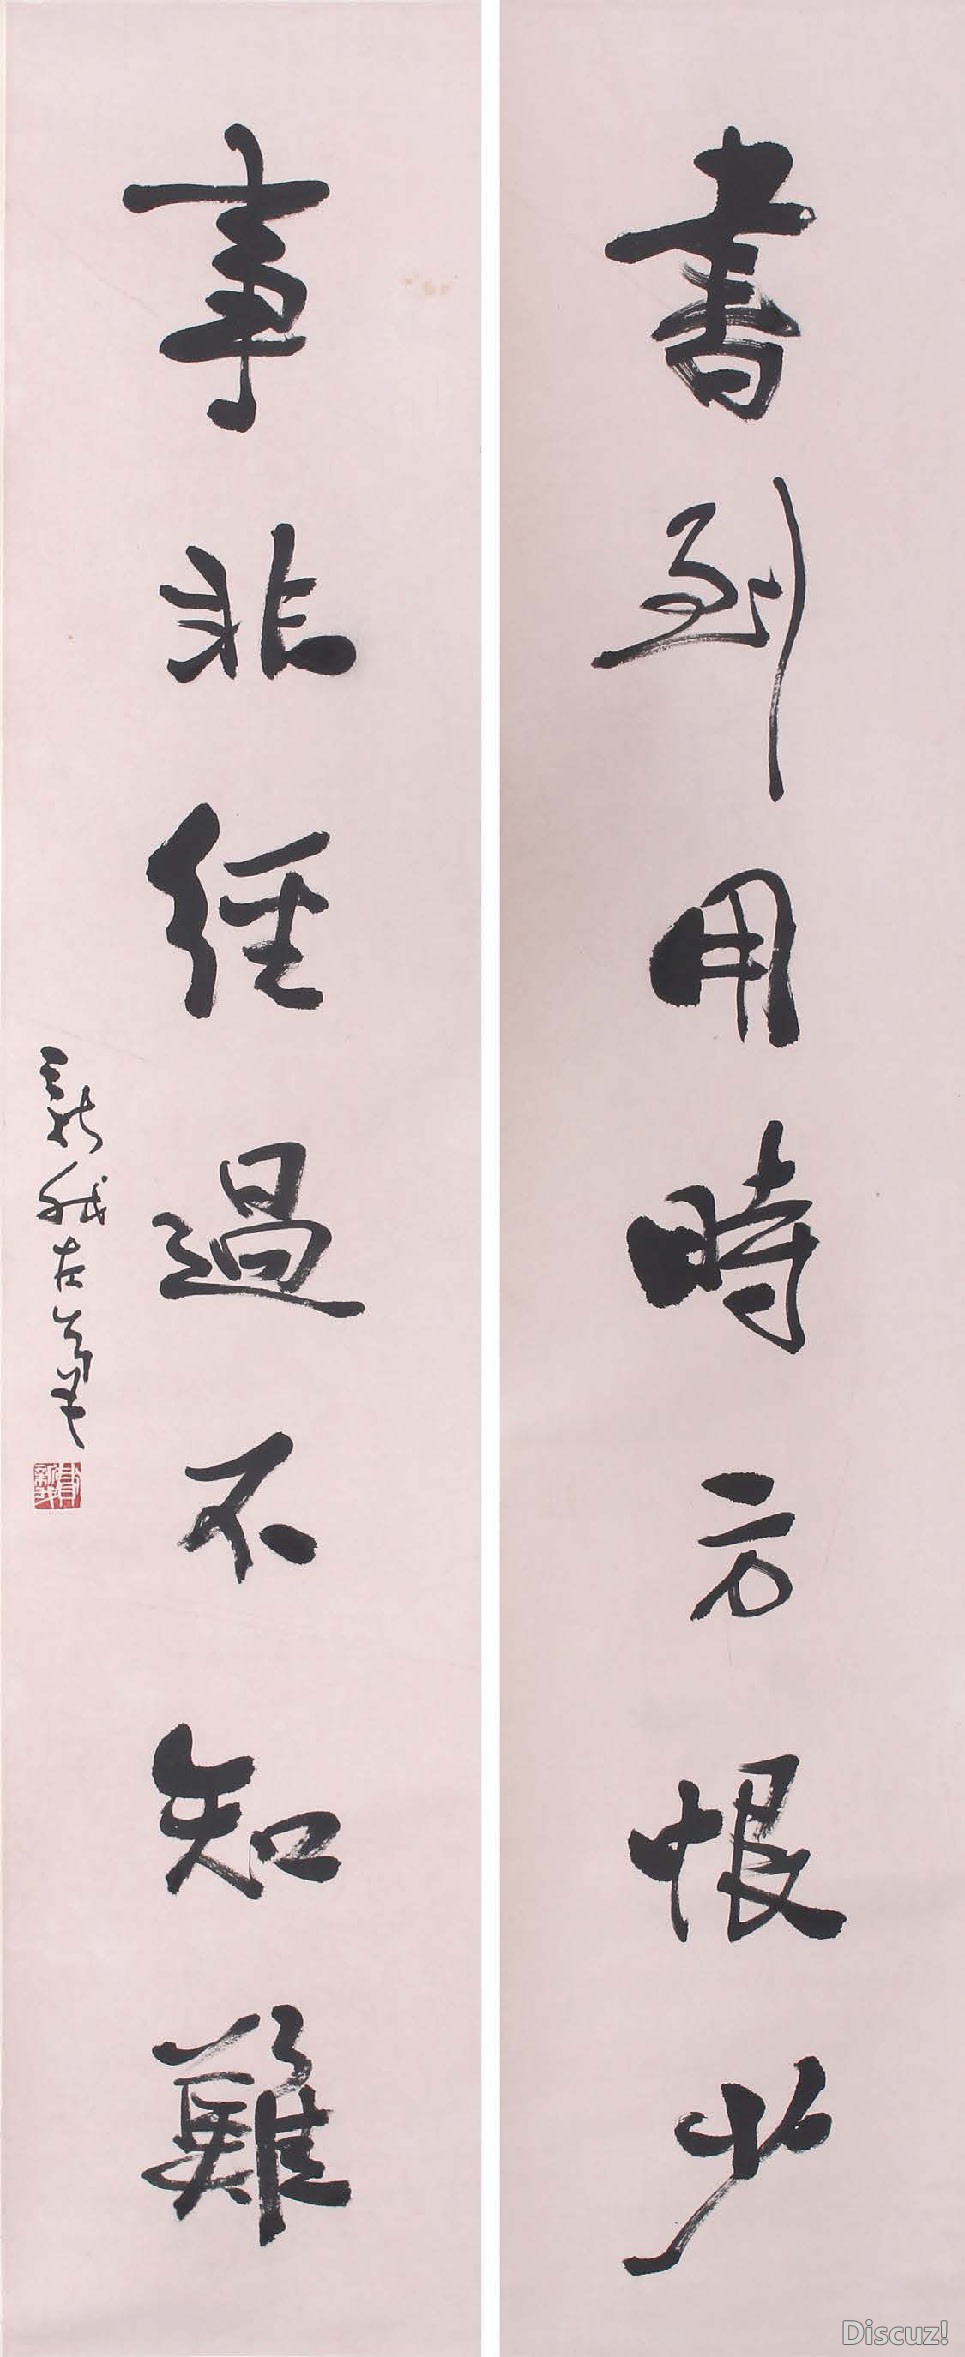 書到用時方恨少
事非經過不知難
費新我左筆
Discuz!